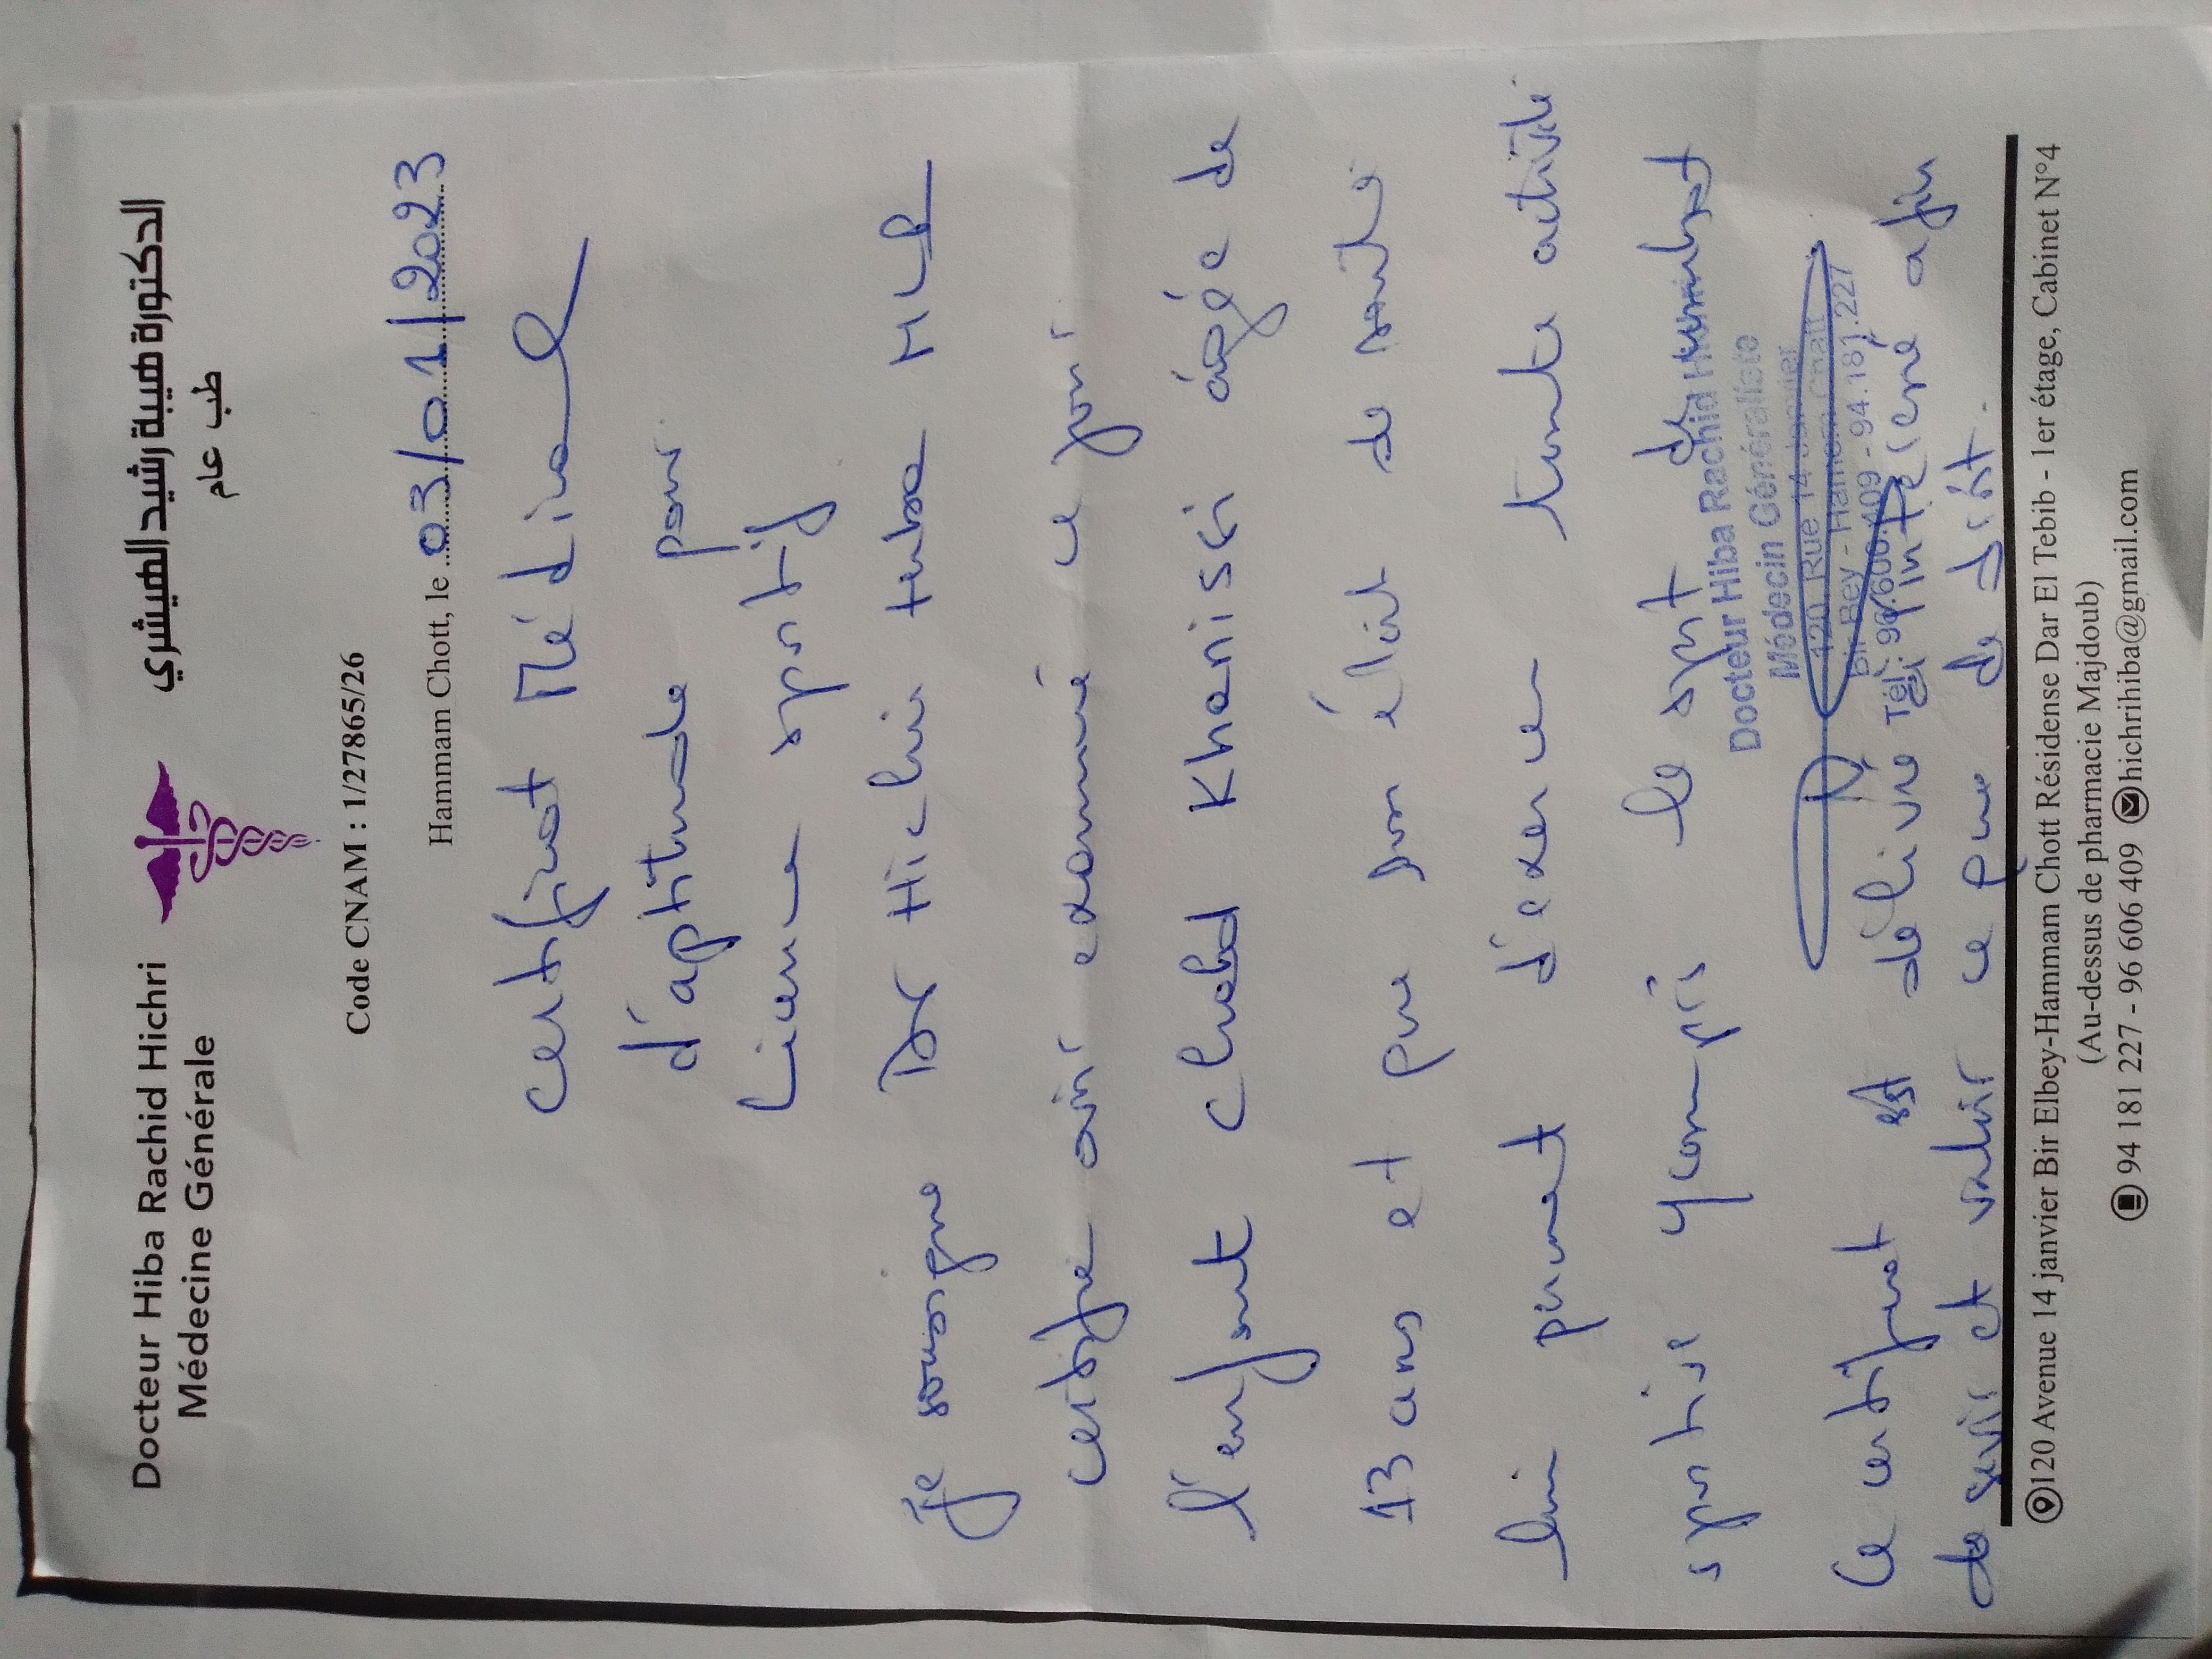 Docteur Hiba Rachid Hichri
Médecine Générale
الدكتورة هيبة رشيد الهيشري
طب عام
Code CNAM : 1/27865/26
Hammam Chott, le 03/01/2023
Certificat Médical
d'aptitude pour
Licence sportif
Je soussigne Dr Hichri hiba
certifie avoir examiné ce jour
l'enfant Khenissi âgée de
13 ans et que son état de santé
lui permet d'exercer toute activité
sportive y compris le sport de combat
Docteur Hiba Rachid
Médecin Généraliste
120, Rue 14 Janvier
Bir Bey - Hamem Chatt
Tél: 96.606.409 - 94.181.227
Ce certificat est délivré à l'intéressé afin
de servir et valoir ce que de droit.
120 Avenue 14 janvier Bir Elbey-Hammam Chott Résidense Dar El Tebib - 1er étage, Cabinet N°4
(Au-dessus de pharmacie Majdoub)
94 181 227 - 96 606 409 hichrihiba@gmail.com